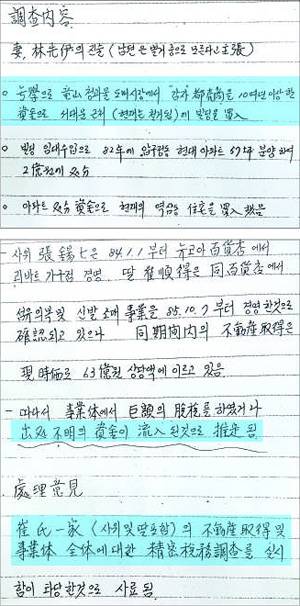 調査内容
妻, 林先伊의 진술 (남편은 병거중으로 모른다고 主張)
○ 독학으로 용산 청과물 도매시장에서 "감자 都賣商을 10여년이상한
資金으로 서대문 근처 (현대는 철거됨)에 빌딩을 買入
○ 빌딩 임대수입으로 82년에 압구정동 현대 아파트 67坪 분양하여
2億원에 処分
○ 아파트 処分 資金으로 현재의 역삼동 住宅을 買入했음
- 사위 張錫七은 84.1.1부터 뉴코아百貨店에서
리바트 가구점 경영. 딸 崔順得은 同百貨店에서
섬유의복및 신발 소매 事業을 85.10.7부터 경영한것으로
確認되고 있으나 同期間内의 不動産取得은
現時価로 63億원 상당액에 이르고 있음
- 따라서 事業体에서 巨額의 脱税를 하였거나
出処不明의 資金이 流入된것으로 推定됨.
處理意見
崔氏一家 (사위및 딸포함)의 不動産取得및
事業体 全体에 대한 精密税務調査를 실시
함이 타당한것으로 사료됨